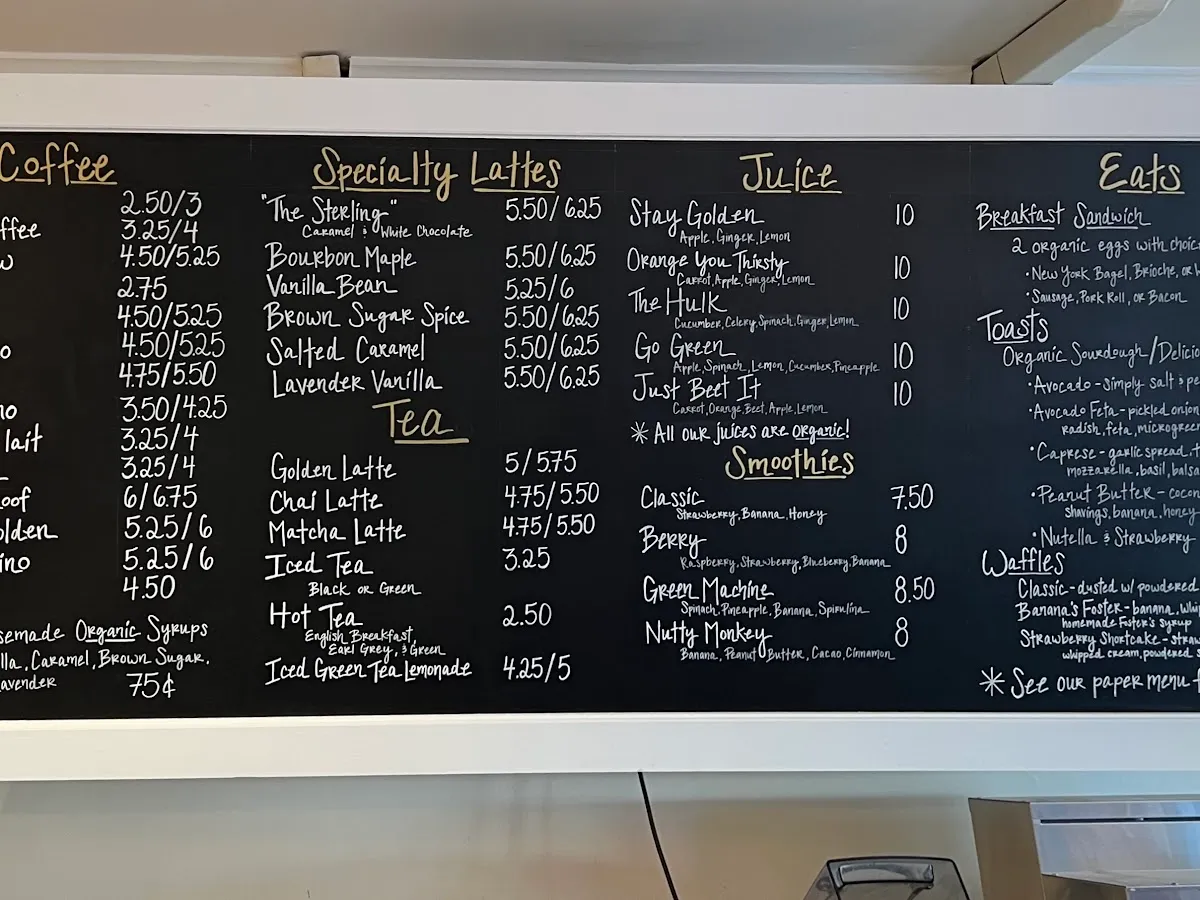 Coffee
2.50/3
ffee 3.25/4
w 4.50/5.25
2.75
4.50/5.25
o 4.50/5.25
4.75/5.50
no 3.50/4.25
lait 3.25/4
3.25/4
oof 6/6.75
olden 5.25/6
ino 5.25/6
4.50
semade Organic Syrups
lla, Caramel, Brown Sugar,
avender 75¢
Specialty Lattes
"The Sterling" 5.50/6.25
Caramel & White Chocolate
Bourbon Maple 5.50/6.25
Vanilla Bean 5.25/6
Brown Sugar Spice 5.50/6.25
Salted Caramel 5.50/6.25
Lavender Vanilla 5.50/6.25
Tea
Golden Latte 5/5.75
Chai Latte 4.75/5.50
Matcha Latte 4.75/5.50
Iced Tea 3.25
Black or Green
Hot Tea 2.50
English Breakfast,
Earl Grey, & Green
Iced Green Tea Lemonade 4.25/5
Juice
Stay Golden 10
Apple, Ginger, Lemon
Orange You Thirsty 10
Carrot, Apple, Ginger, Lemon
The Hulk 10
Cucumber, Celery, Spinach, Ginger, Lemon
Go Green 10
Apple, Spinach, Lemon, Cucumber, Pineapple
Just Beet It 10
Carrot, Orange, Beet, Apple, Lemon
* All our juices are organic!
Smoothies
Classic 7.50
Strawberry, Banana, Honey
Berry 8
Raspberry, Strawberry, Blueberry, Banana
Green Machine 8.50
Spinach, Pineapple, Banana, Spirulina
Nutty Monkey 8
Banana, Peanut Butter, Cacao, Cinnamon
Eats
Breakfast Sandwich
2 organic eggs with choic
• New York Bagel, Brioche, or
• Sausage, Pork Roll, or Bacon
Toasts
Organic Sourdough/Delicio
• Avocado - simply salt & pe
• Avocado Feta - pickled onion
radish, feta, microgreen
• Caprese - garlic spread, t
mozzarella, basil, balsa
• Peanut Butter - cocon
shavings, banana, honey
• Nutella & Strawberry
Waffles
Classic - dusted w/ powdered
Banana's Foster - banana, whi
homemade Foster's syrup
Strawberry Shortcake - straw
whipped cream, powdered s
* See our paper menu f